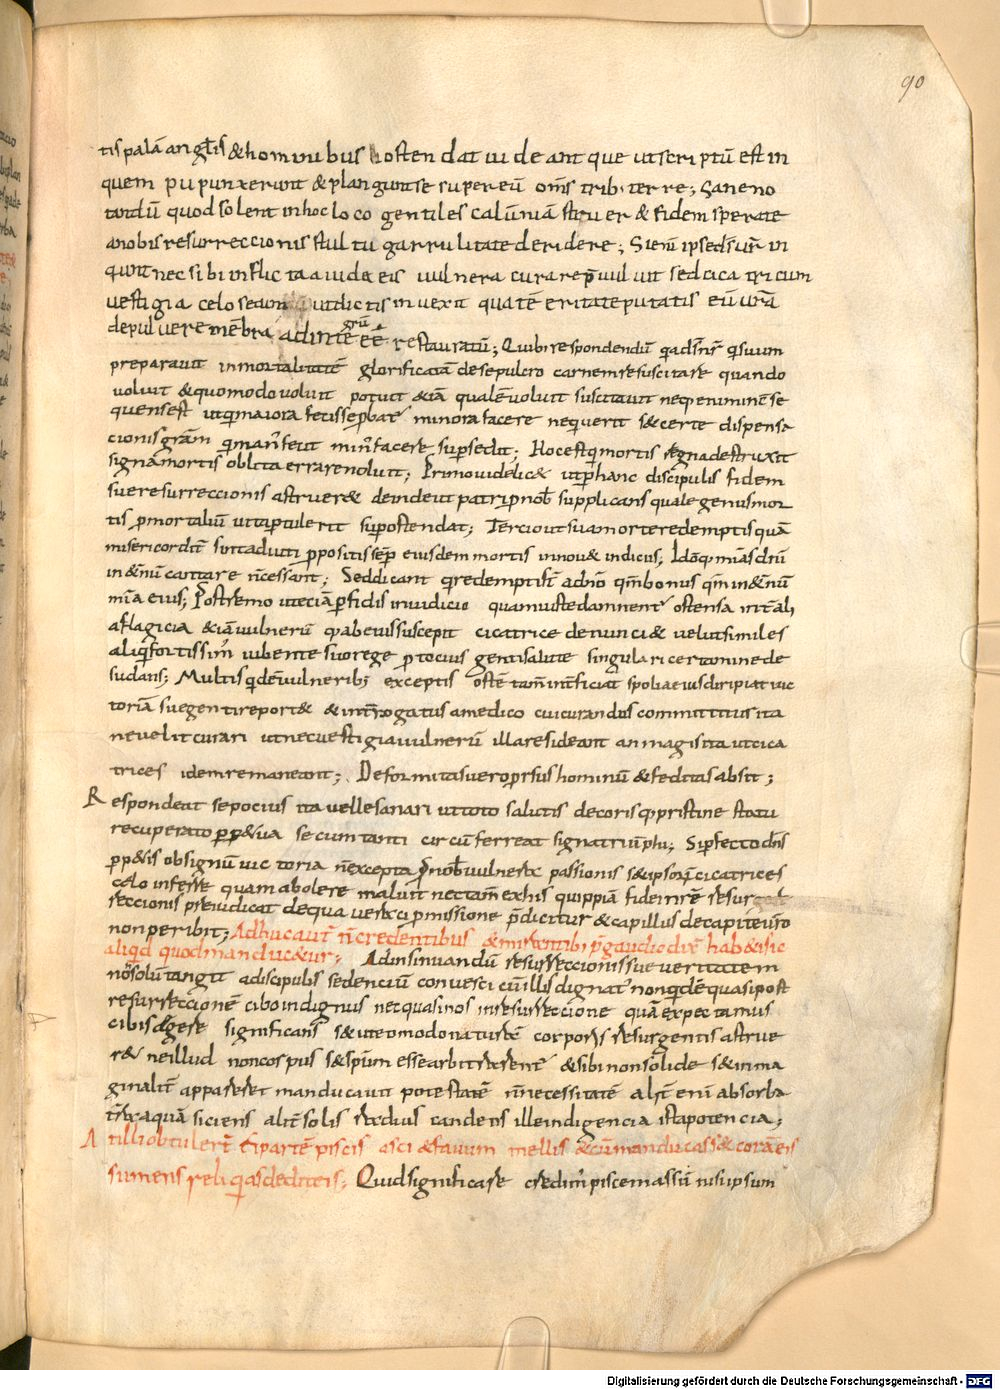 90
tis palā angĺis & hominibus hostendat uideant que ut scriptū est in
quem pupunxerunt & plangunt se super eū oms̄ trib; terre; Sane no
tandū quod solent in hoc loco gentiles calūniā struer & fidem sperate
a nobis resurreccionis stultu garrulitate deridere; Si eni ipse dn̄s ur̄ in
quunt nec sibi inflicta a iudeis uulnera curare p̄ualuit sed cicatricum
uestigia celo secum ut dictis inuexit qua tēeritate putatis eū urā
de puluere mēbra ad integrū eē restauraturū; Quib; respondendū qa dn̄s nr̄ qi suum
preparauit inmortalitatē glorificatā de sepulcro carnem resuscitare quando
uoluit & quomodo uoluit potuit & iā qualē uoluit suscitauit neq; enim cōse
quens est ut qi maiora fecisse p̄bat᷑ minora facere nequerit s& certe dispensa
cionis grām qi maā fecit minā facere supersedit; Hoc est qi mortis regna destruxit
signa mortis oblitterare noluit; Primo uidelic& ut p̄ hanc discipulis fidem
sue resurreccionis astruer& deinde ut patri p̄ nob̄ supplicans quale genus mor
tis p̄ mortaliū uita p̄tulerit sup̄ ostendat; Tercio ut sua morte redemptis quā
misericordit̄ sint adiuti p̄positis sēp̄ eiusdem mortis innou& indicus; Idoq; mīas dn̄i
in &nū cantare n̄ cessant; Sed dicant qi redempti st̄ a dn̄o qm̄ bonus qm̄ in &nū
mīa eius; Postremo ut eciā p̄fidis in iudicio quam iuste damnent᷑ ostensa int̄ ali
a flagicia & iā uulnerū q̄ ab eis suscepit cicatrice denunci& uelut similes
aliq; fortissim̄ iubente suo rege p̄ tocius gentis salute singulari certamine de
sudans; Multis qidē uulnerib; exceptis ostē tam̄ interficiat spolia eius diripiat uic
toriā sue genti report& & int̄rogatus a medico cui curandus committitus ita
ne uelit curari ut nec uestigia uulnerū illa resideant an magis ita ut cica
trices idem remaneant; Deformitas uero prorsus hominū & feditas absit;
Respondeat se pocius ita uelle sanari ut toto salutis decoris q; pristine statu
recuperato p̄p&ua secum tanti circūferreat signa triūphi; Si p̄fecto dn̄s
p̄p&is ob signū uictoria n̄ excepta p̄ nob̄ uulnera passionis s& ipsorū cicatrices
celo inferre quam abolere maluit nec tam̄ ex his quippiā fidei nr̄e resur
reccionis preiudicat de qua uerax permissione p̄dicitur & capillus de capite uro
non peribit; Adhuc aut̄ n̄ credentibus & mirantib; p̄ gaudio dix̄ hab&is hic
aliqd quod manduc&ur; Ad insinuandū resurreccionis sue ueritatem
nō solū tangit a discipulis sed eciū conuesci cū illis dignat᷑ non qidē quasi post
resurreccionē cibo indignus nec quasi nos in resurreccione quā expectamus
cibis egere significans s& ut eo modo naturā corporis resurgentis astrue
r& ne illud non corpus s& sp̄um esse arbitrarent᷑ & sibi non solide s& ima
ginalit̄ apparer& manducauit potestate n̄ necessitate alit̄ eni absorb&
t̄ra aquā siciens alit̄ solis radius candens ille indigencia ista potencia;
At illi obtulert̄ ei partē piscis assi & fauum mellis & cū manducass& corā eis
sumens reliqias dedit eis; Quid significare credim' piscem assū nisi ipsum
Digitalisierung gefördert durch die Deutsche Forschungsgemeinschaft - DFG